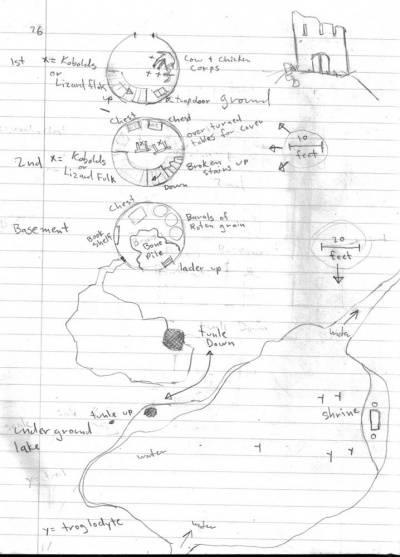 26
1st
X = Kobolds
or
Lizard Folk
X
X
X
Cow + Chicken
Corps
up
trapdoor
ground
2nd
X = Kobolds
or
Lizard Folk
Chest
Chest
over turned
tables for cover
Broken
stairs up
Down
10
feet
Basement
Chest
Book
shelf
Bone
Pile
Barals of
Roton grain
lader up
20
feet
tunle
Down
tunle up
under ground
lake
water
Y
Y
Y
Y
Y
shrine
water
y = troglodyte